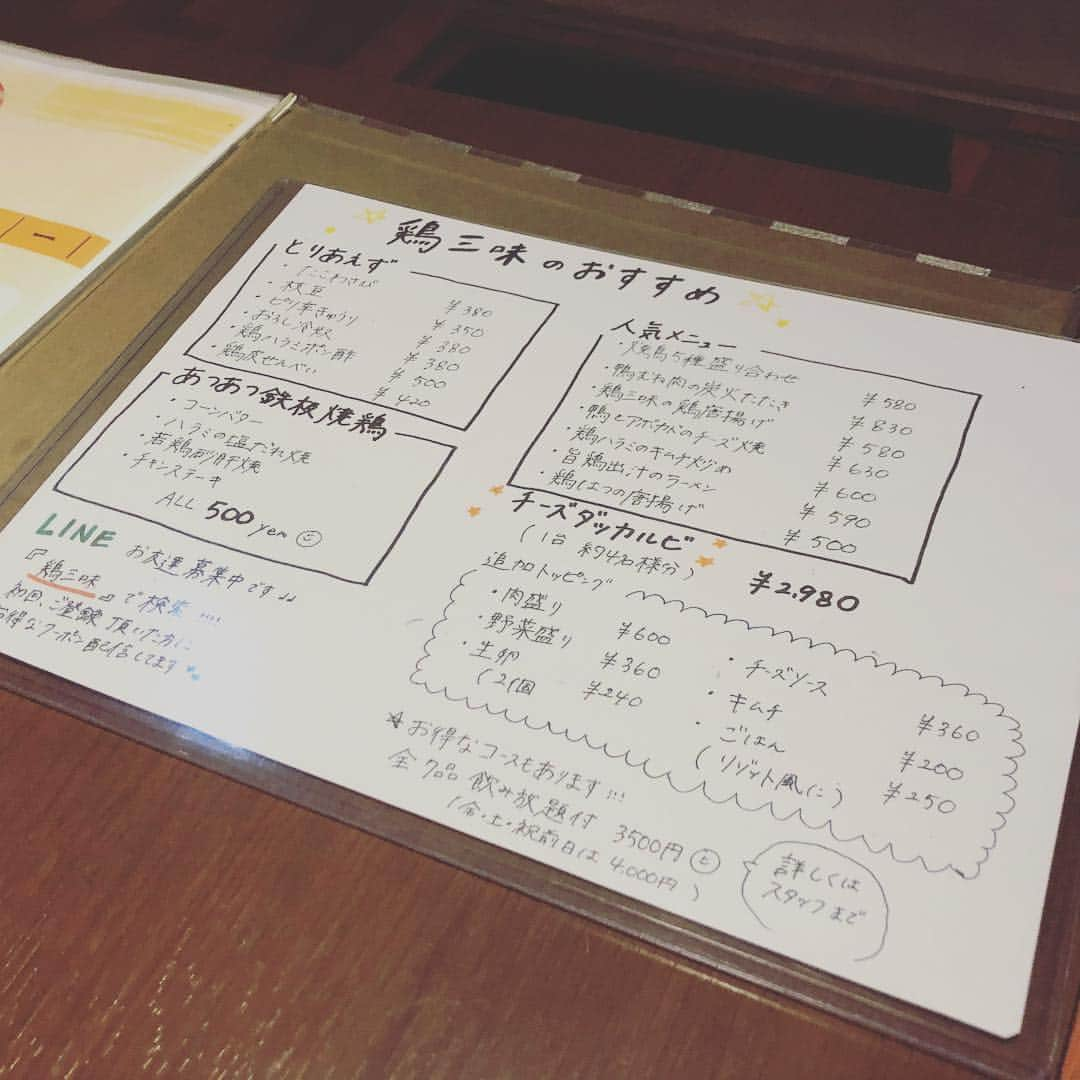 鶏三味のおすすめ
とりあえず
・たこわさび ¥380
・枝豆 ¥350
・ピリ辛きゅうり ¥380
・おろし冷奴 ¥380
・鶏ハラミポン酢 ¥500
・鶏皮せんべい ¥420
あつあつ鉄板焼鶏
・コーンバター
・ハラミの塩だれ焼
・若鶏の肝焼
・チキンステーキ
ALL 500yen
LINE お友達募集中です♪♪
『鶏三味』で検索....
初回、ご登録頂いた方に
お得なクーポン配信してます
人気メニュー
・焼鳥5種盛り合わせ ¥580
・鴨むね肉の炭火たたき ¥830
・鶏三味の鶏唐揚げ ¥580
・鴨とアボカドのチーズ焼 ¥630
・鶏ハラミのキムチ炒め ¥600
・旨鶏出汁のラーメン ¥590
・鶏はつの唐揚げ ¥500
チーズダッカルビ
(1台 約4名様分) ¥2,980
追加トッピング
・肉盛り ¥600
・野菜盛り ¥360
・生卵 (2個 ¥240
・チーズソース ¥360
・キムチ ¥200
・ごはん (リゾット風に) ¥250
☆お得なコースもあります!!!
全7品 飲み放題付 3500円
(金・土・祝前日は 4,000円)
詳しくは
スタッフまで